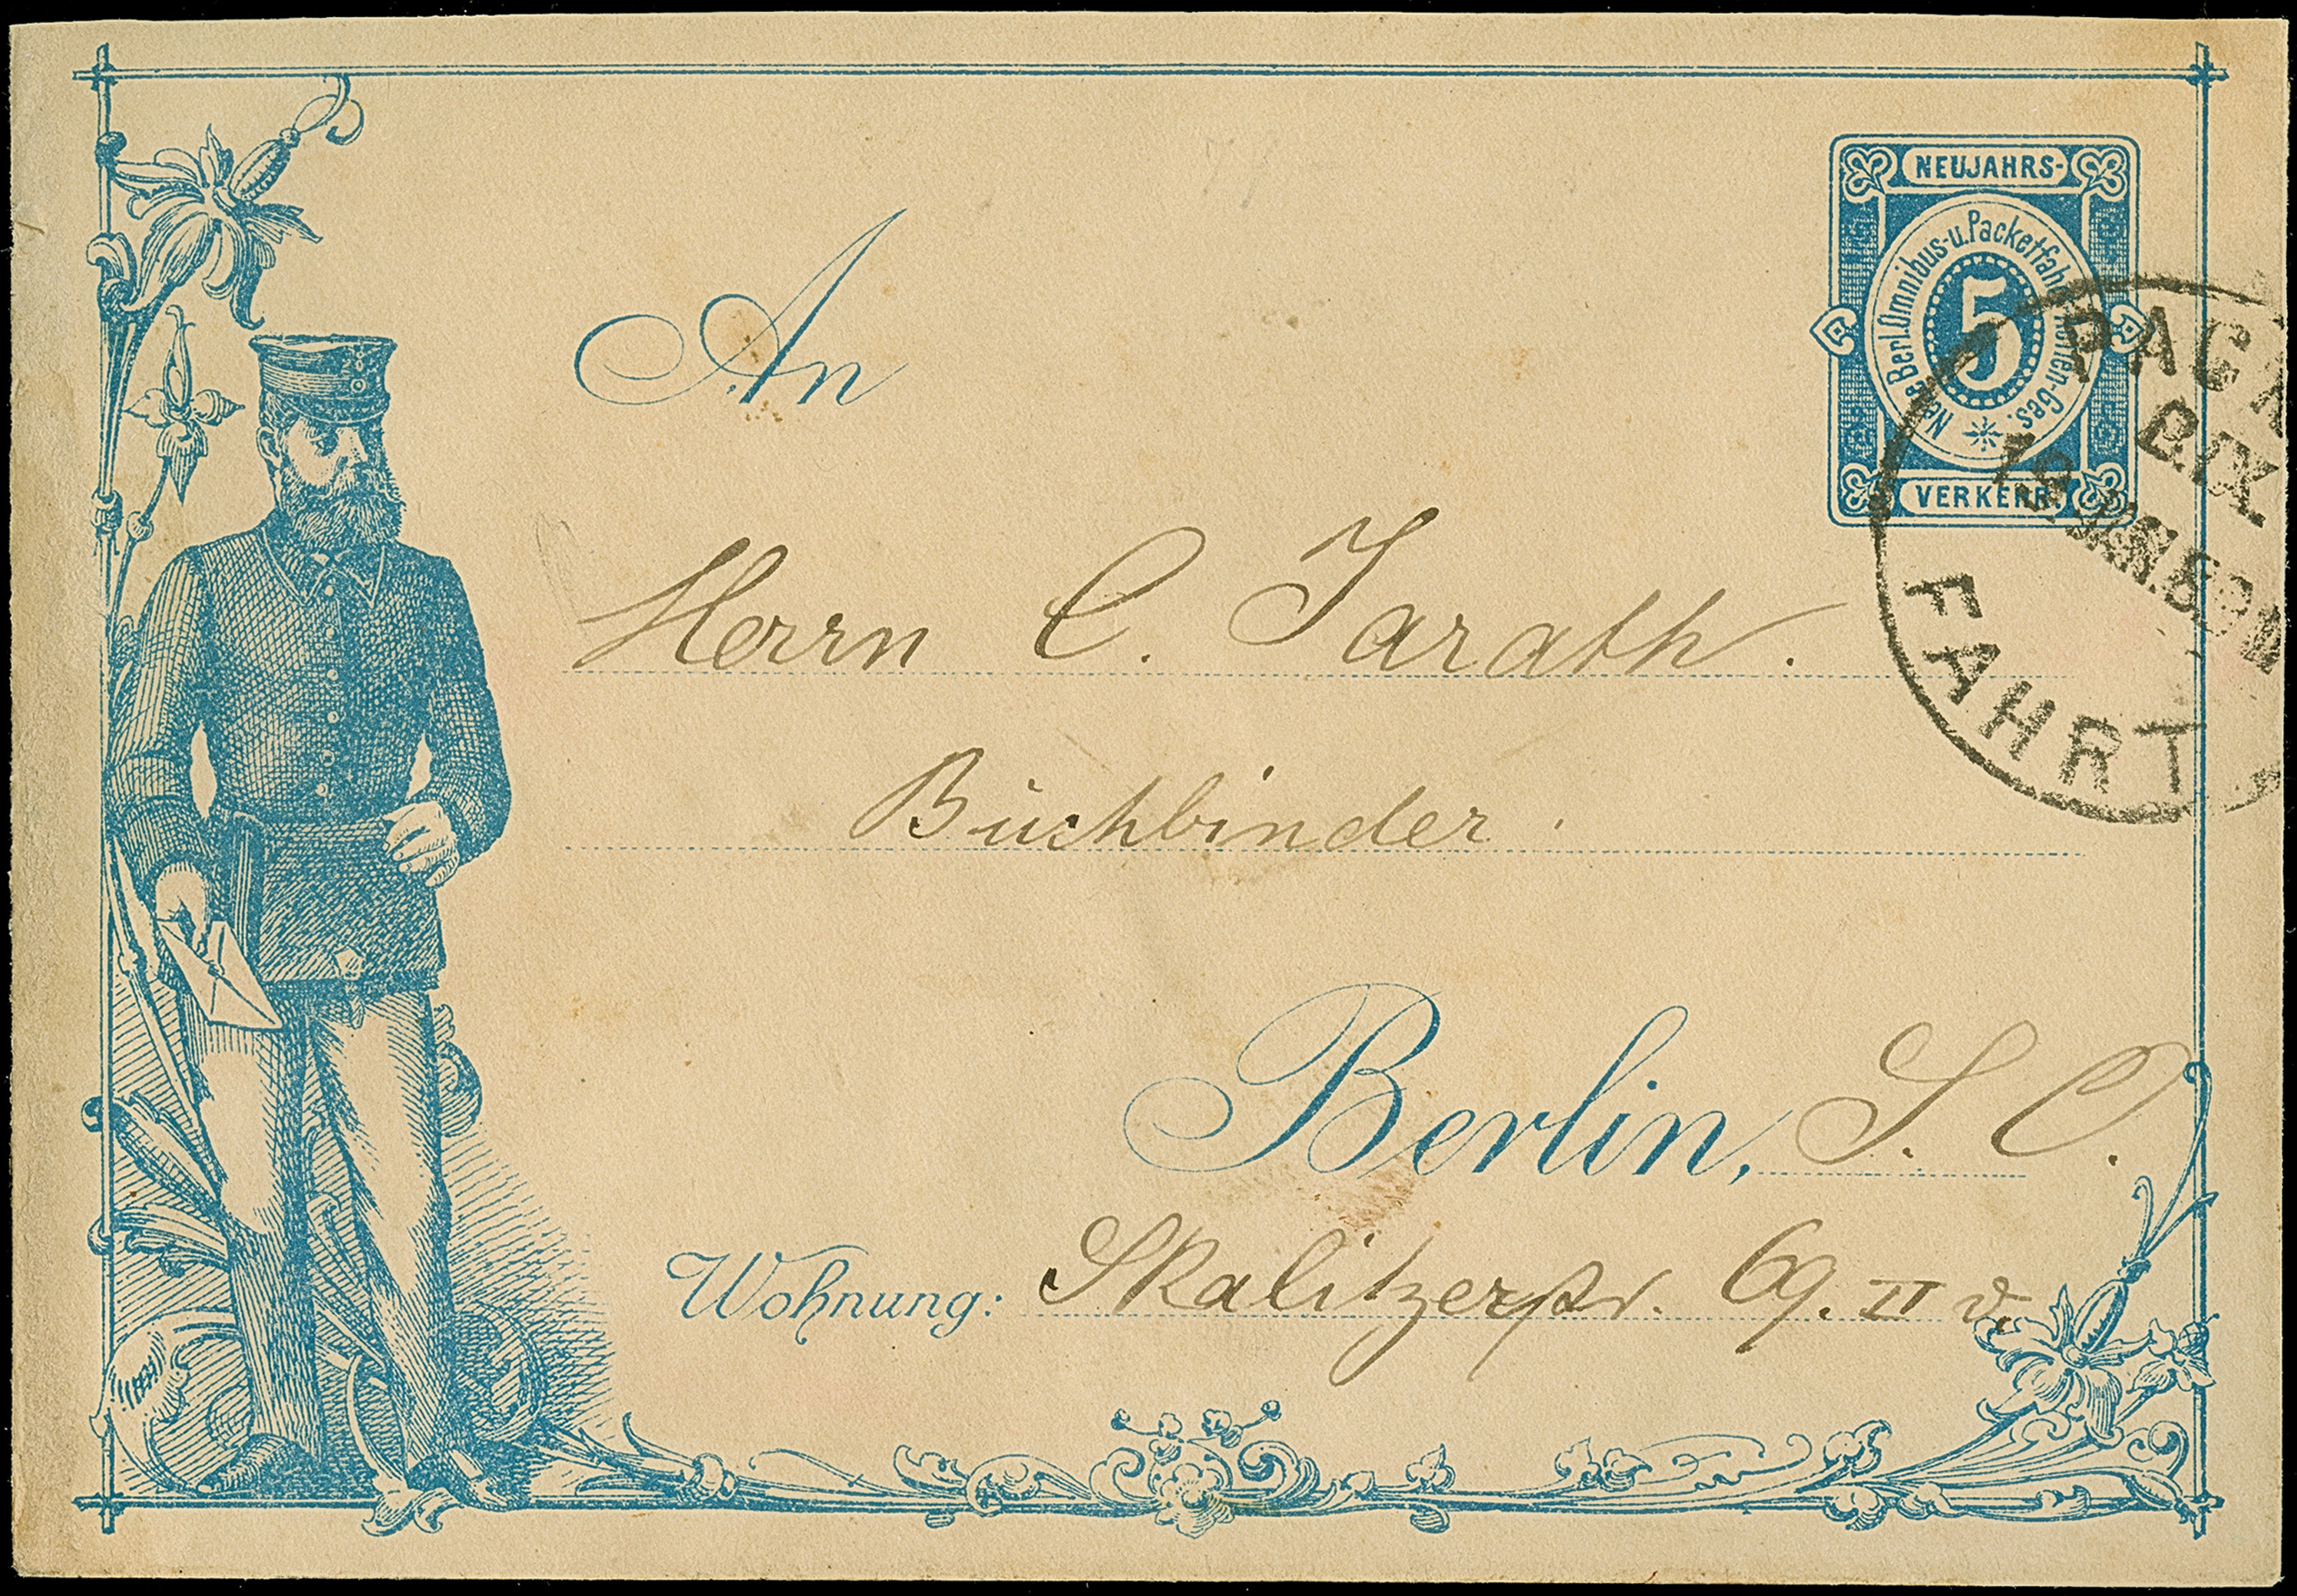 NEUJAHRS-
Neue Berl. Omnibus-u. Packetfahrt Actien-Ges.
5
VERKEHR.
PACK
FAHRT
An
Herrn C. Jarath.
Buchbinder.
Berlin, S. O.
Wohnung: Skalitzerstr. 69. II v.